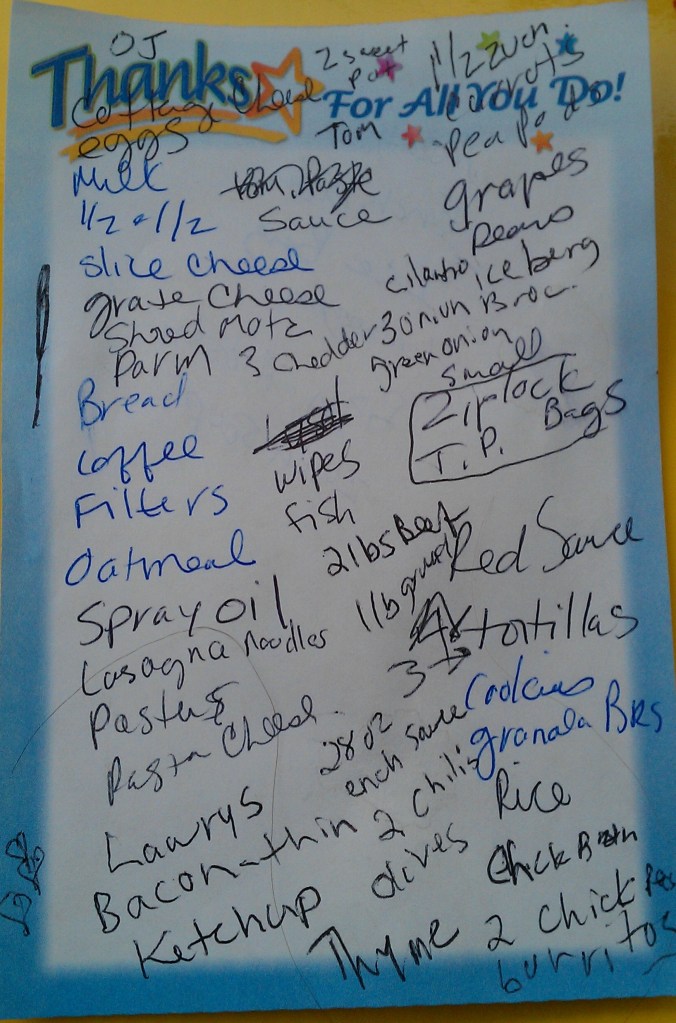 OJ
Thanks
For All You Do!
Cottage Cheese
eggs
Milk
1/2 & 1/2
Slice Cheese
grate Cheese
Shred Motz
Parm 3 Chedder
Bread
Coffee
Filters
Oatmeal
Spray oil
Lasagna Noodles
Pasta
Pasta Cheese
Lawrys
Bacon-thin
Ketchup
2 sweet
pot
Tom
Sauce
cilantro
3 onion
green onion
wipes
fish
2 lbs Beef
1 lb ground
28 oz
ench sauce
2 chilis
olives
Thyme
1 1/2 zuch.
carrots
Pea Pods
grapes
iceberg
Broc.
Small
Ziplock
Bags
T.P.
Red Sauce
tortillas
3
Cookies
granola BRS
Rice
Chick Broth
2 Chick
burritos